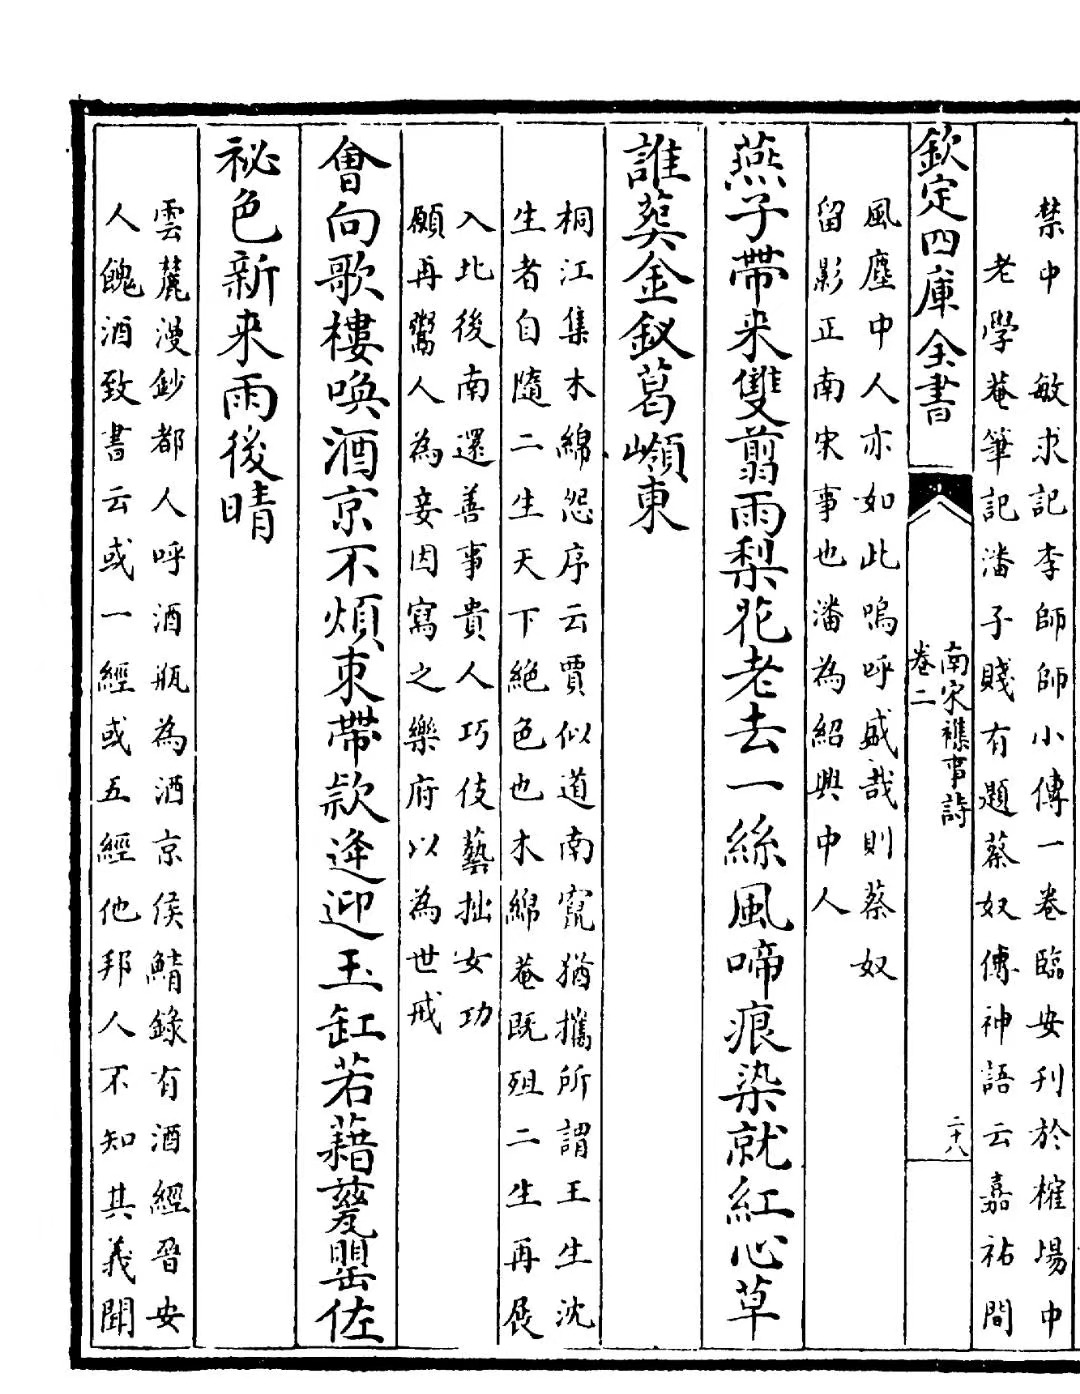 禁中　敏求記李師師小傳一卷臨安刋於榷場中
老學菴筆記潘子賤有題蔡奴傳神語云嘉祐間
欽定四庫全書
南宋襍事詩
卷二
二十八
風塵中人亦如此嗚呼盛哉則蔡奴
留影正南宋事也潘為紹興中人
燕子帶来雙翦雨梨花老去一絲風啼痕染就紅心草
誰葬金釵葛嶺東
桐江集木綿怨序云賈似道南竄猶攜所謂王生沈
生者自隨二生天下絕色也木綿菴既殂二生再展
入北後南還善事貴人巧伎藝拙女功
願再鬻人為妾因寫之樂府以為世戒
會向歌樓喚酒京不煩束帶款逄迎玉缸若藉甆罌佐
祕色新来雨後晴
雲麓漫鈔都人呼酒瓶為酒京侯鯖錄有酒經晉安
人餽酒致書云或一經或五經他邦人不知其義聞